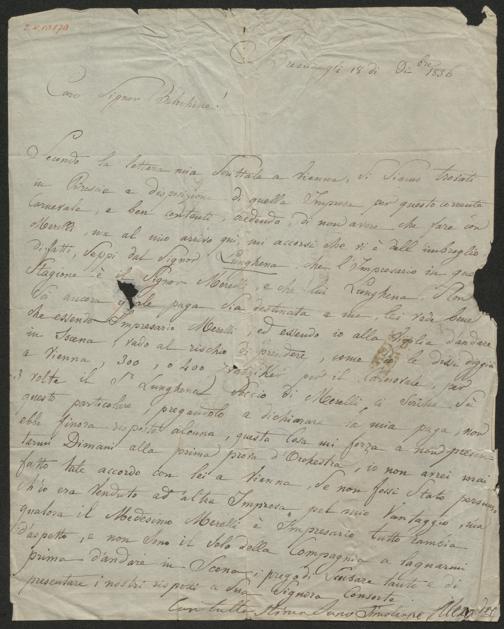 18 di Xbre 1836
Caro Signor
Secondo la lettera mia Scrittale a Vienna, Si Siamo trovati
in Brescia a disposizione di quella Impresa per questo corrente
Carnevale, e ben contenti, credendo, di non avere che fare con
Merelli, ma al mio arrivo qui, mi accorsi che vi è dell'imbroglio
difatti, Seppi dal Signor Lunghena, che l'Impresario in questa
Stagione è il Signor Merelli, e che lui Lunghena, non
Sa ancora quale paga Sia destinata a me, lei vede bene
che essendo Impresario Merelli, ed essendo io alla d'andare
in Scena, vado al rischio di prendere, come le dissi
a Vienna, 300, o 400 per il Carnevale,
3 volte il Sr. Lunghena Socio di Merelli, li Scrisse Su
questo particolare, pregandolo a dichiarare la mia paga, non
ebbi finora risposta alcuna, questa cosa mi forza a non presen-
tarmi Dimani alla prima prova d'Orchestra, io non avrei mai
fatto tale accordo con lei a Vienna, Se non fossi Stato persuaso,
ch'io era venduto ad altra Impresa, pel mio vantaggio, ma
qualora il Medesimo Merelli è Impresario tutto cangia
d'aspetto, e non Sono il Solo della Compagnia a lagnarmi
prima d'andare in Scena; prego di Scusare tanto e di
presentare i nostri rispetti a Sua Signora Consorte
Con tutta Stima Sono